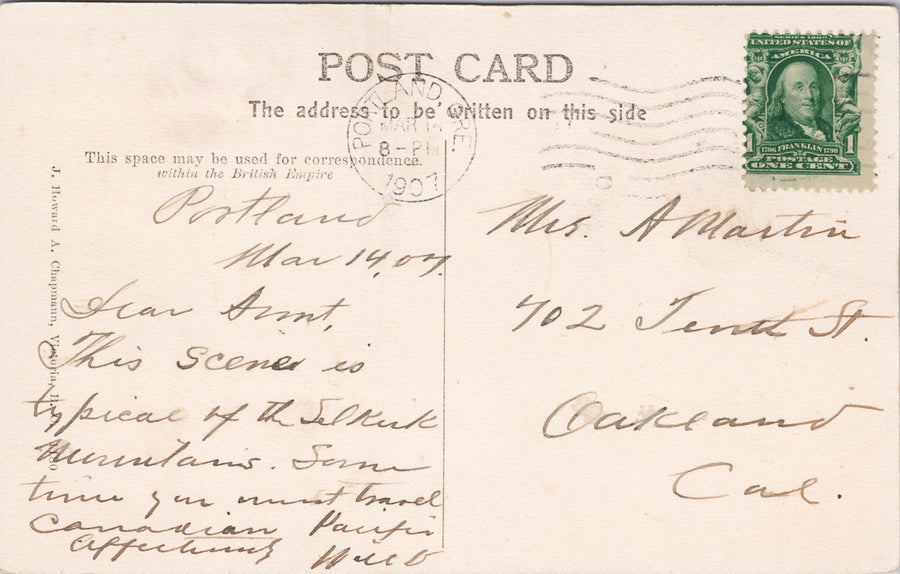 POST CARD
The address to be written on this side
PORTLAND, ORE.
MAR 14
8-PM
1907
SERIES 1902
UNITED STATES OF
AMERICA
1 1
1706 FRANKLIN 1790
POSTAGE
ONE CENT
This space may be used for correspondence.
within the British Empire
J. Howard A. Chapmann, Victoria, B.
Portland
Mar 14, 07.
Dear Aunt,
This scene is
typical of the Selkirk
Mountains. Some
time you must travel
Canadian Pacific
Affectionately Will D
Mrs. A Martin
702 Tenth St.
Oakland
Cal.